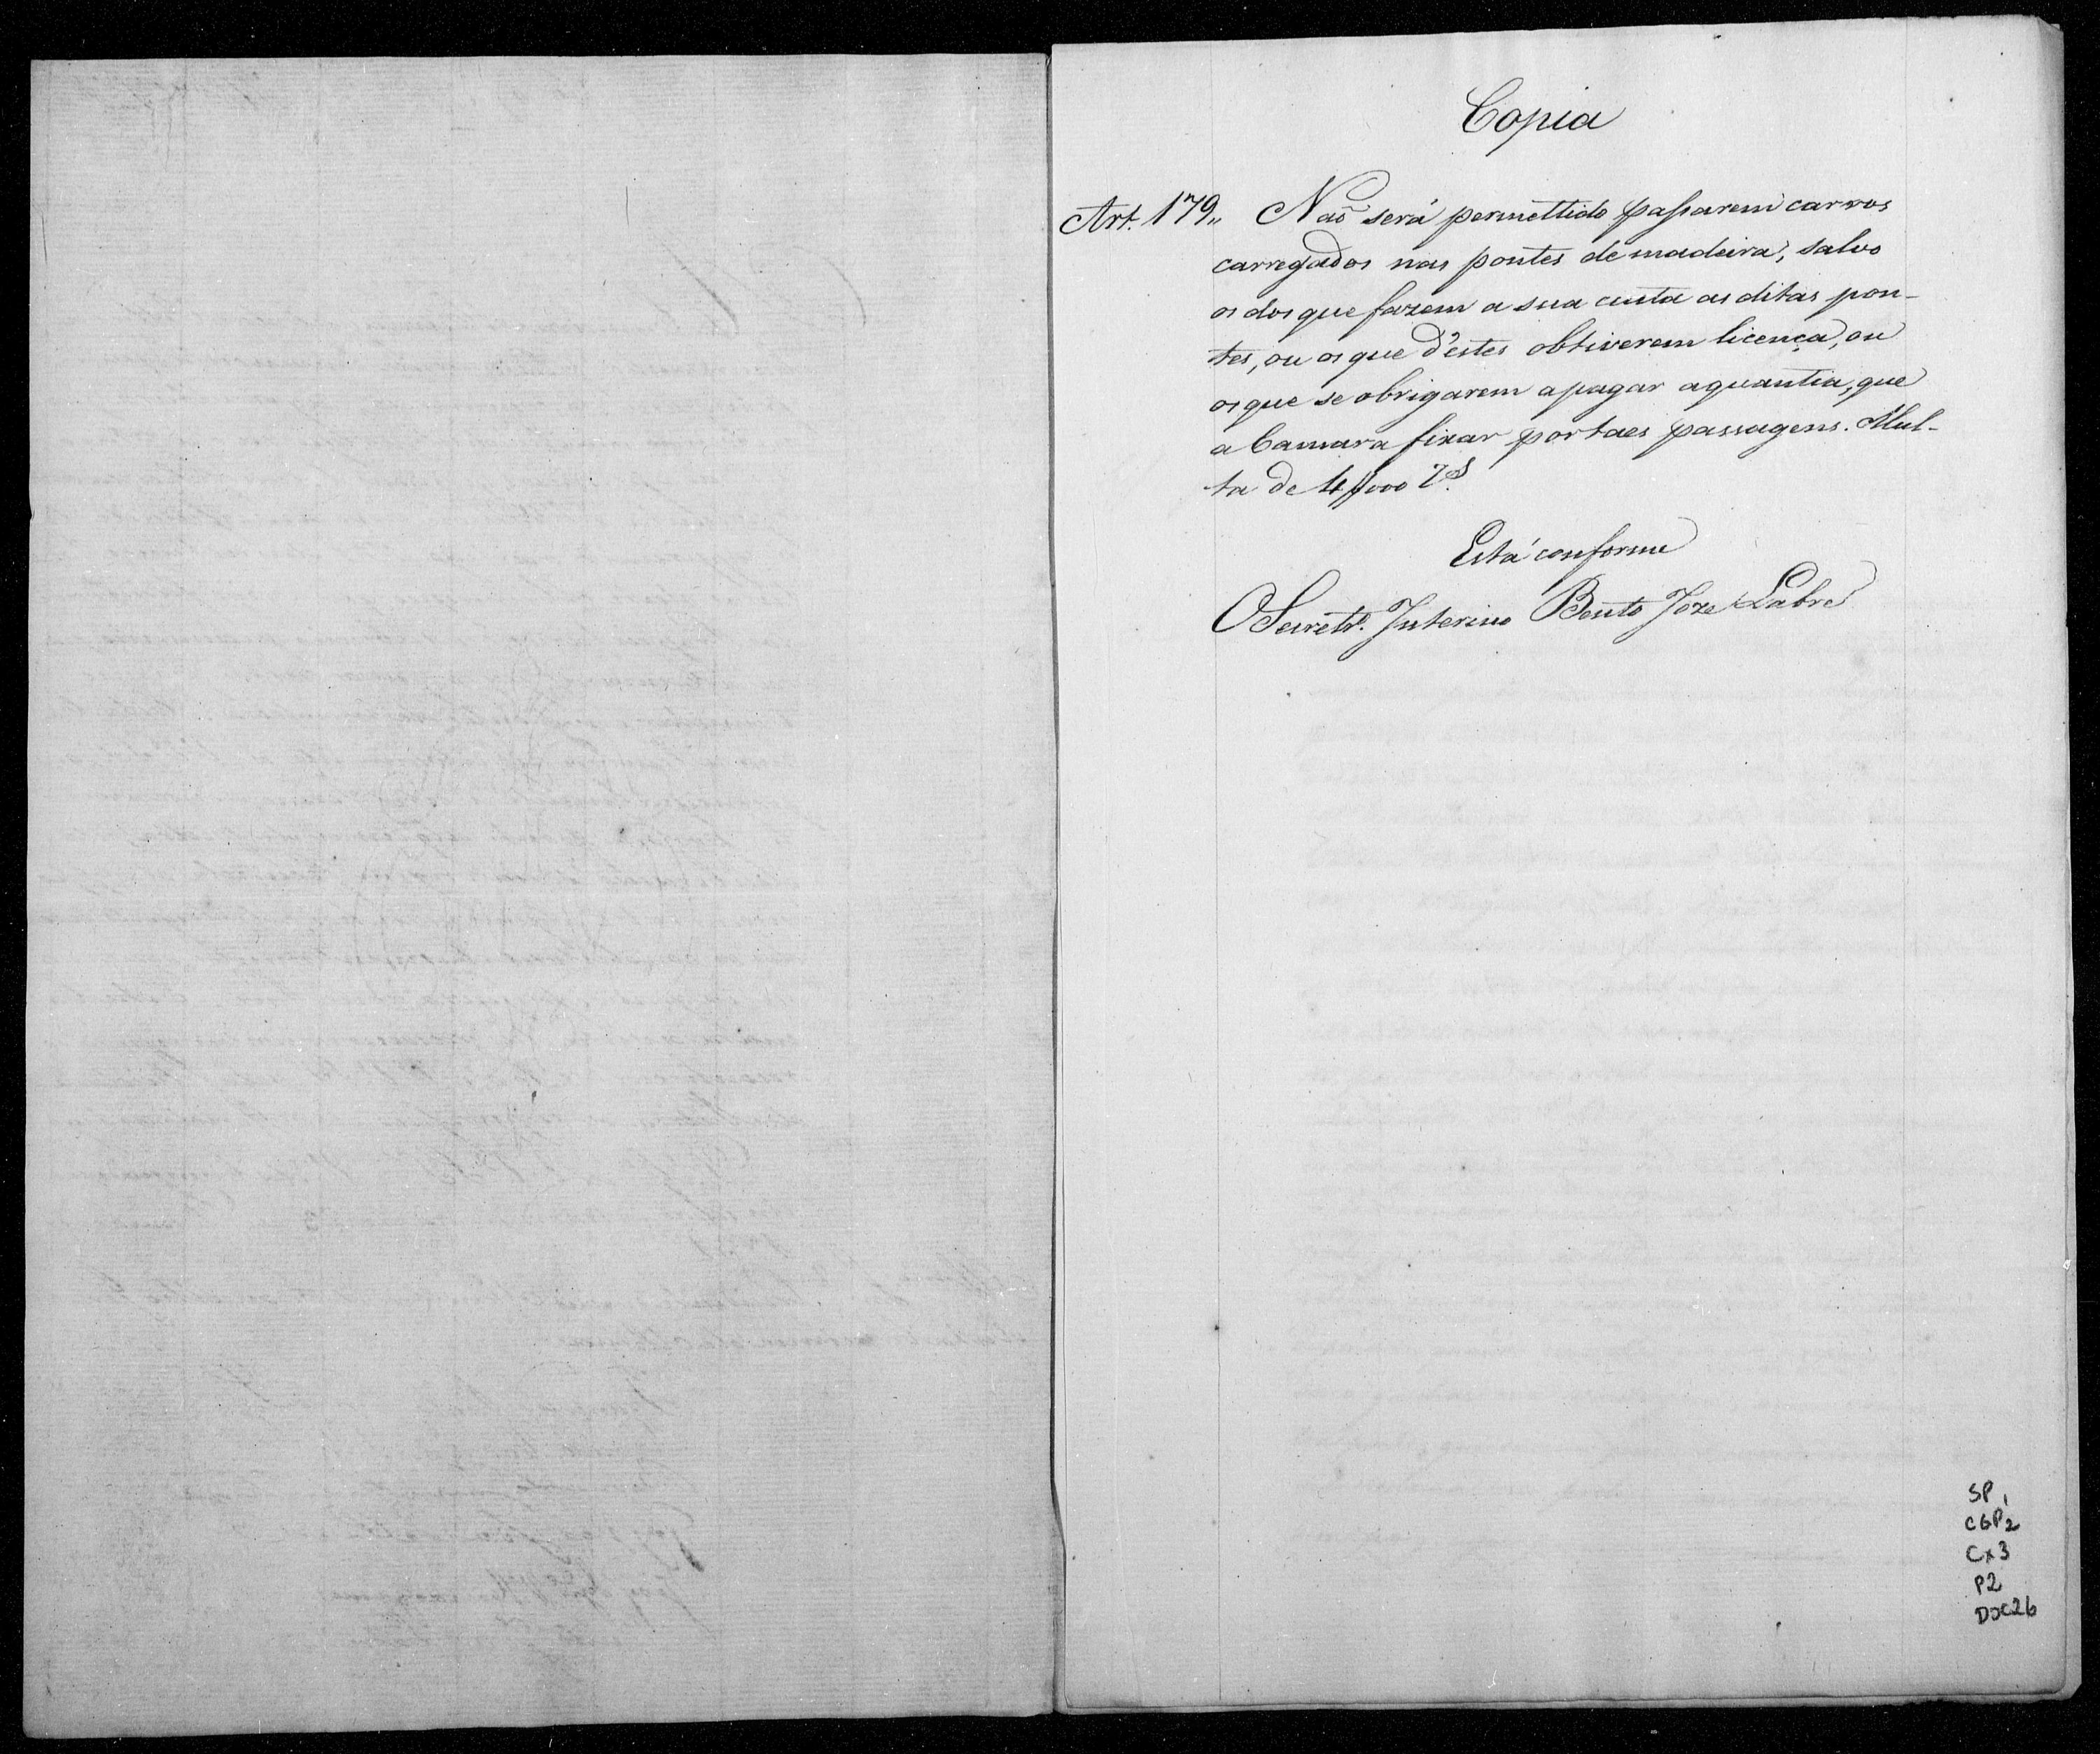 Copia
Art. 179,, Naõ será permettido passarem carros
carregados nas pontes de madeira, salvo
os dos que fazem a sua custa as ditas pon-
tes, ou os que d'estes obtiverem licença, ou
os que se obrigarem a pagar a quantia, que
a Camara fixar por taes passagens. Mul-
ta de 4$000 rs.
Está conforme
O Secretr.º Interino Bento Joze Labre
SP
CGP2
Cx3
P2
Doc26